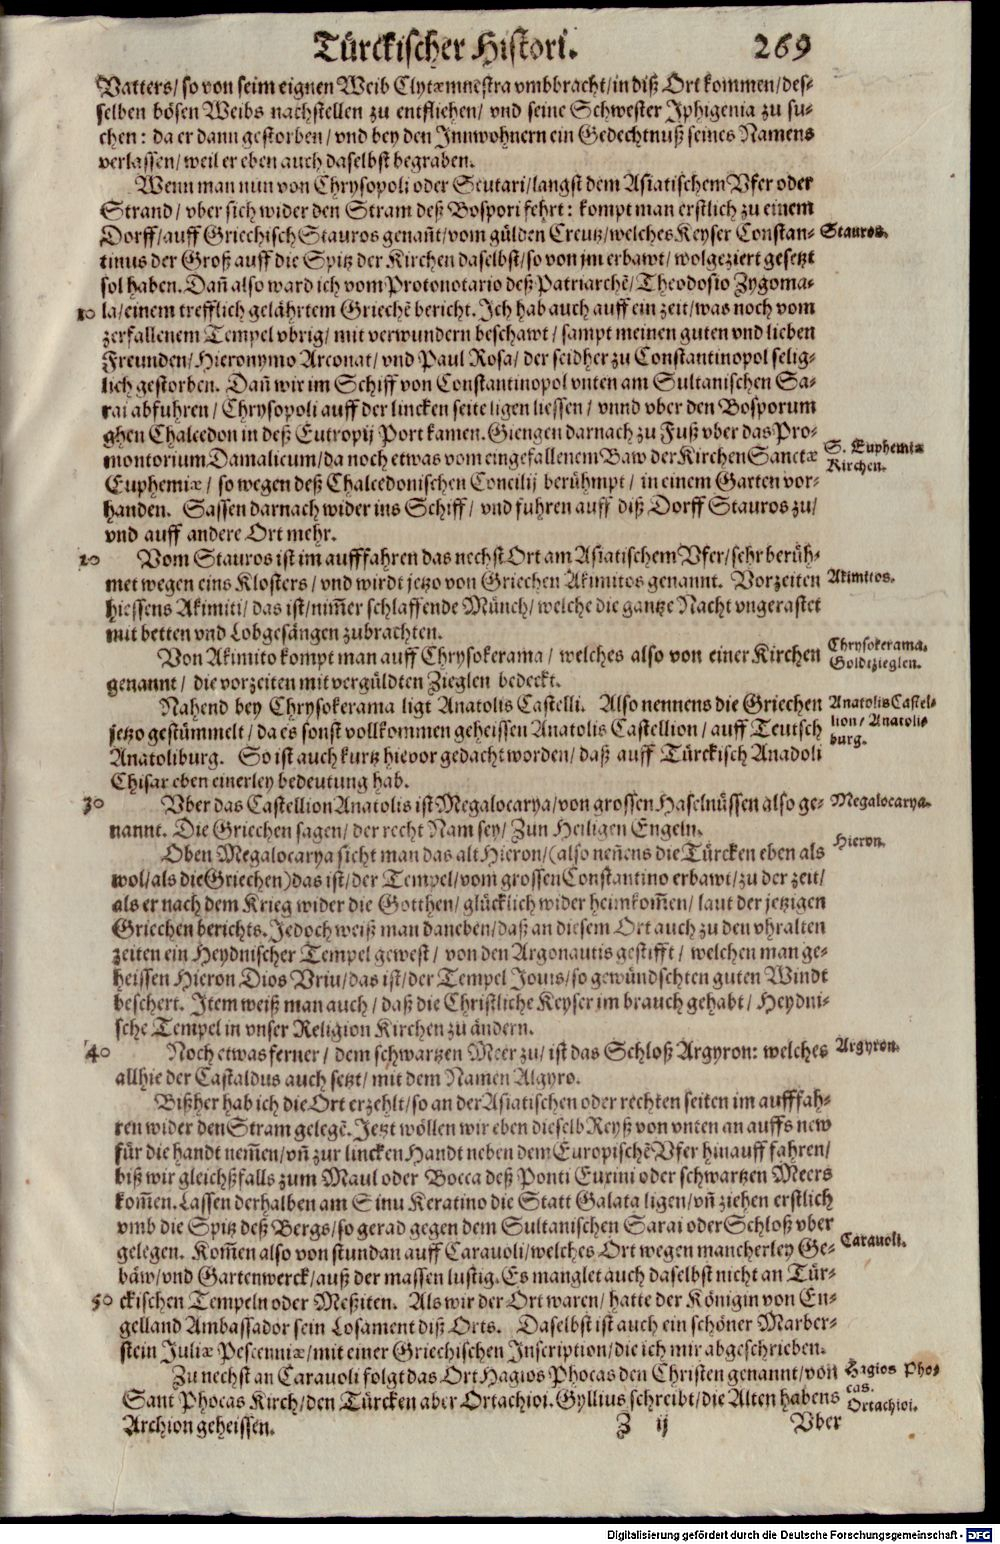 Türckischer Histori. 269
Vatters/ so von seim eignen Weib Clytæmnestra vmbbracht/ in diß Ort kommen/ des-
selben bösen Weibs nachstellen zu entfliehen/ vnd seine Schwester Iphigenia zu su-
chen: da er dann gestorben/ vnd bey den Innwohnern ein Gedechtnuß seines Namens
verlassen/ weil er eben auch daselbst begraben.
Wenn man nun von Chrysopoli oder Scutari/ langst dem Asiatischem Vfer oder
Strand/ vber sich wider den Stram deß Bospori fehrt: kompt man erstlich zu einem
Dorff/ auff Griechisch Stauros genañt/ vom gülden Creutz/ welches Keyser Constan- Stauros.
tinus der Groß auff die Spitz der Kirchen daselbst/ so von jm erbawt/ wolgeziert gesetzt
sol haben. Dañ also ward ich vom Protonotario deß Patriarchẽ/ Theodosio Zygoma-
10 la/ einem trefflich gelährtem Griechẽ bericht. Ich hab auch auff ein zeit/ was noch vom
zerfallenem Tempel vbrig/ mit verwundern beschawt/ sampt meinen guten vnd lieben
Freunden/ Hieronymo Arconat/ vnd Paul Rosa/ der seidher zu Constantinopol selig-
lich gestorben. Dañ wir im Schiff von Constantinopol vnten am Sultanischen Sa-
rai abfuhren/ Chrysopoli auff der lincken seite ligen liessen/ vnnd vber den Bosporum
ghen Chalcedon in deß Eutropij Port kamen. Giengen darnach zu Fuß vber das Pro-
montorium Damalicum/ da noch etwas vom eingefallenem Baw der Kirchen Sanctæ S. Euphemiæ
Euphemiæ/ so wegen deß Chalcedonischen Concilij berühmpt/ in einem Garten vor- Kirchen.
handen. Sassen darnach wider ins Schiff/ vnd fuhren auff diß Dorff Stauros zu/
vnd auff andere Ort mehr.
20 Vom Stauros ist im aufffahren das nechst Ort am Asiatischem Vfer/ sehr berüh-
met wegen eins Klosters/ vnd wirdt jetzo von Griechen Akimitos genannt. Vorzeiten Akimitos.
hiessens Akimiti/ das ist/ nim̃er schlaffende Münch/ welche die gantze Nacht vngerastet
mit betten vnd Lobgesängen zubrachten.
Von Akimito kompt man auff Chrysokerama/ welches also von einer Kirchen Chrysokerama.
genannt/ die vorzeiten mit vergüldten Zieglen bedeckt. Goldtzieglen.
Nahend bey Chrysokerama ligt Anatolis Castelli. Also nennens die Griechen Anatolis Castel-
jetzo gestümmelt/ da es sonst vollkommen geheissen Anatolis Castellion/ auff Teutsch lion/ Anatolis
Anatoliburg. So ist auch kurtz hievor gedacht worden/ daß auff Türckisch Anadoli burg.
Chisar eben einerley bedeutung hab.
30 Vber das Castellion Anatolis ist Megalocarya/ von grossen Haselnüssen also ge- Megalocarya.
nannt. Die Griechen sagen/ der recht Nam sey/ Zun Heiligen Engeln.
Oben Megalocarya sicht man das alt Hieron/ (also neñens die Türcken eben als Hieron.
wol/ als die Griechen) das ist/ der Tempel/ vom grossen Constantino erbawt/ zu der zeit/
als er nach dem Krieg wider die Gotthen/ glücklich wider heimkom̃en/ laut der jetzigen
Griechen berichts. Jedoch weiß man daneben/ daß an diesem Ort auch zu den vhralten
zeiten ein Heydnischer Tempel gewest/ von den Argonautis gestifft/ welchen man ge-
heissen Hieron Dios Vriu/ das ist/ der Tempel Jouis/ so gewündschten guten Windt
beschert. Item weiß man auch/ daß die Christliche Keyser im brauch gehabt/ Heydni-
sche Tempel in vnser Religion Kirchen zu ändern.
40 Noch etwas ferner/ dem schwartzen Meer zu/ ist das Schloß Argyron: welches Argyron.
allhie der Castaldus auch setzt/ mit dem Namen Algyro.
Bißher hab ich die Ort erzehlt/ so an der Asiatischen oder rechten seiten im aufffah-
ren wider den Stram gelegẽ. Jetzt wöllen wir eben dieselb Reyß von vnten an auffs new
für die handt nem̃en/ vñ zur lincken Handt neben dem Europischẽ Vfer hinauff fahren/
biß wir gleichßfalls zum Maul oder Bocca deß Ponti Euxini oder schwartzen Meers
kom̃en. Lassen derhalben am Sinu Keratino die Statt Galata ligen/ vñ ziehen erstlich
vmb die Spitz deß Bergs/ so gerad gegen dem Sultanischen Sarai oder Schloß vber
gelegen. Kom̃en also von stundan auff Carauoli/ welches Ort wegen mancherley Ge- Carauoli.
bäw/ vnd Gartenwerck/ auß der massen lustig. Es manglet auch daselbst nicht an Tür-
50 ckischen Tempeln oder Meßiten. Als wir der Ort waren/ hatte der Königin von En-
gelland Ambassador sein Losament diß Orts. Daselbst ist auch ein schöner Marber-
stein Juliæ Pescenniæ/ mit einer Griechischen Inscription/ die ich mir abgeschrieben.
Zu nechst an Carauoli folgt das Ort Hagios Phocas den Christen genannt/ von Hagios Pho-
Sant Phocas Kirch/ den Türcken aber Ortachioi. Gyllius schreibt/ die Alten habens cas.
Archion geheissen. Ortachioi.
Z ij Vber
Digitalisierung gefördert durch die Deutsche Forschungsgemeinschaft - DFG